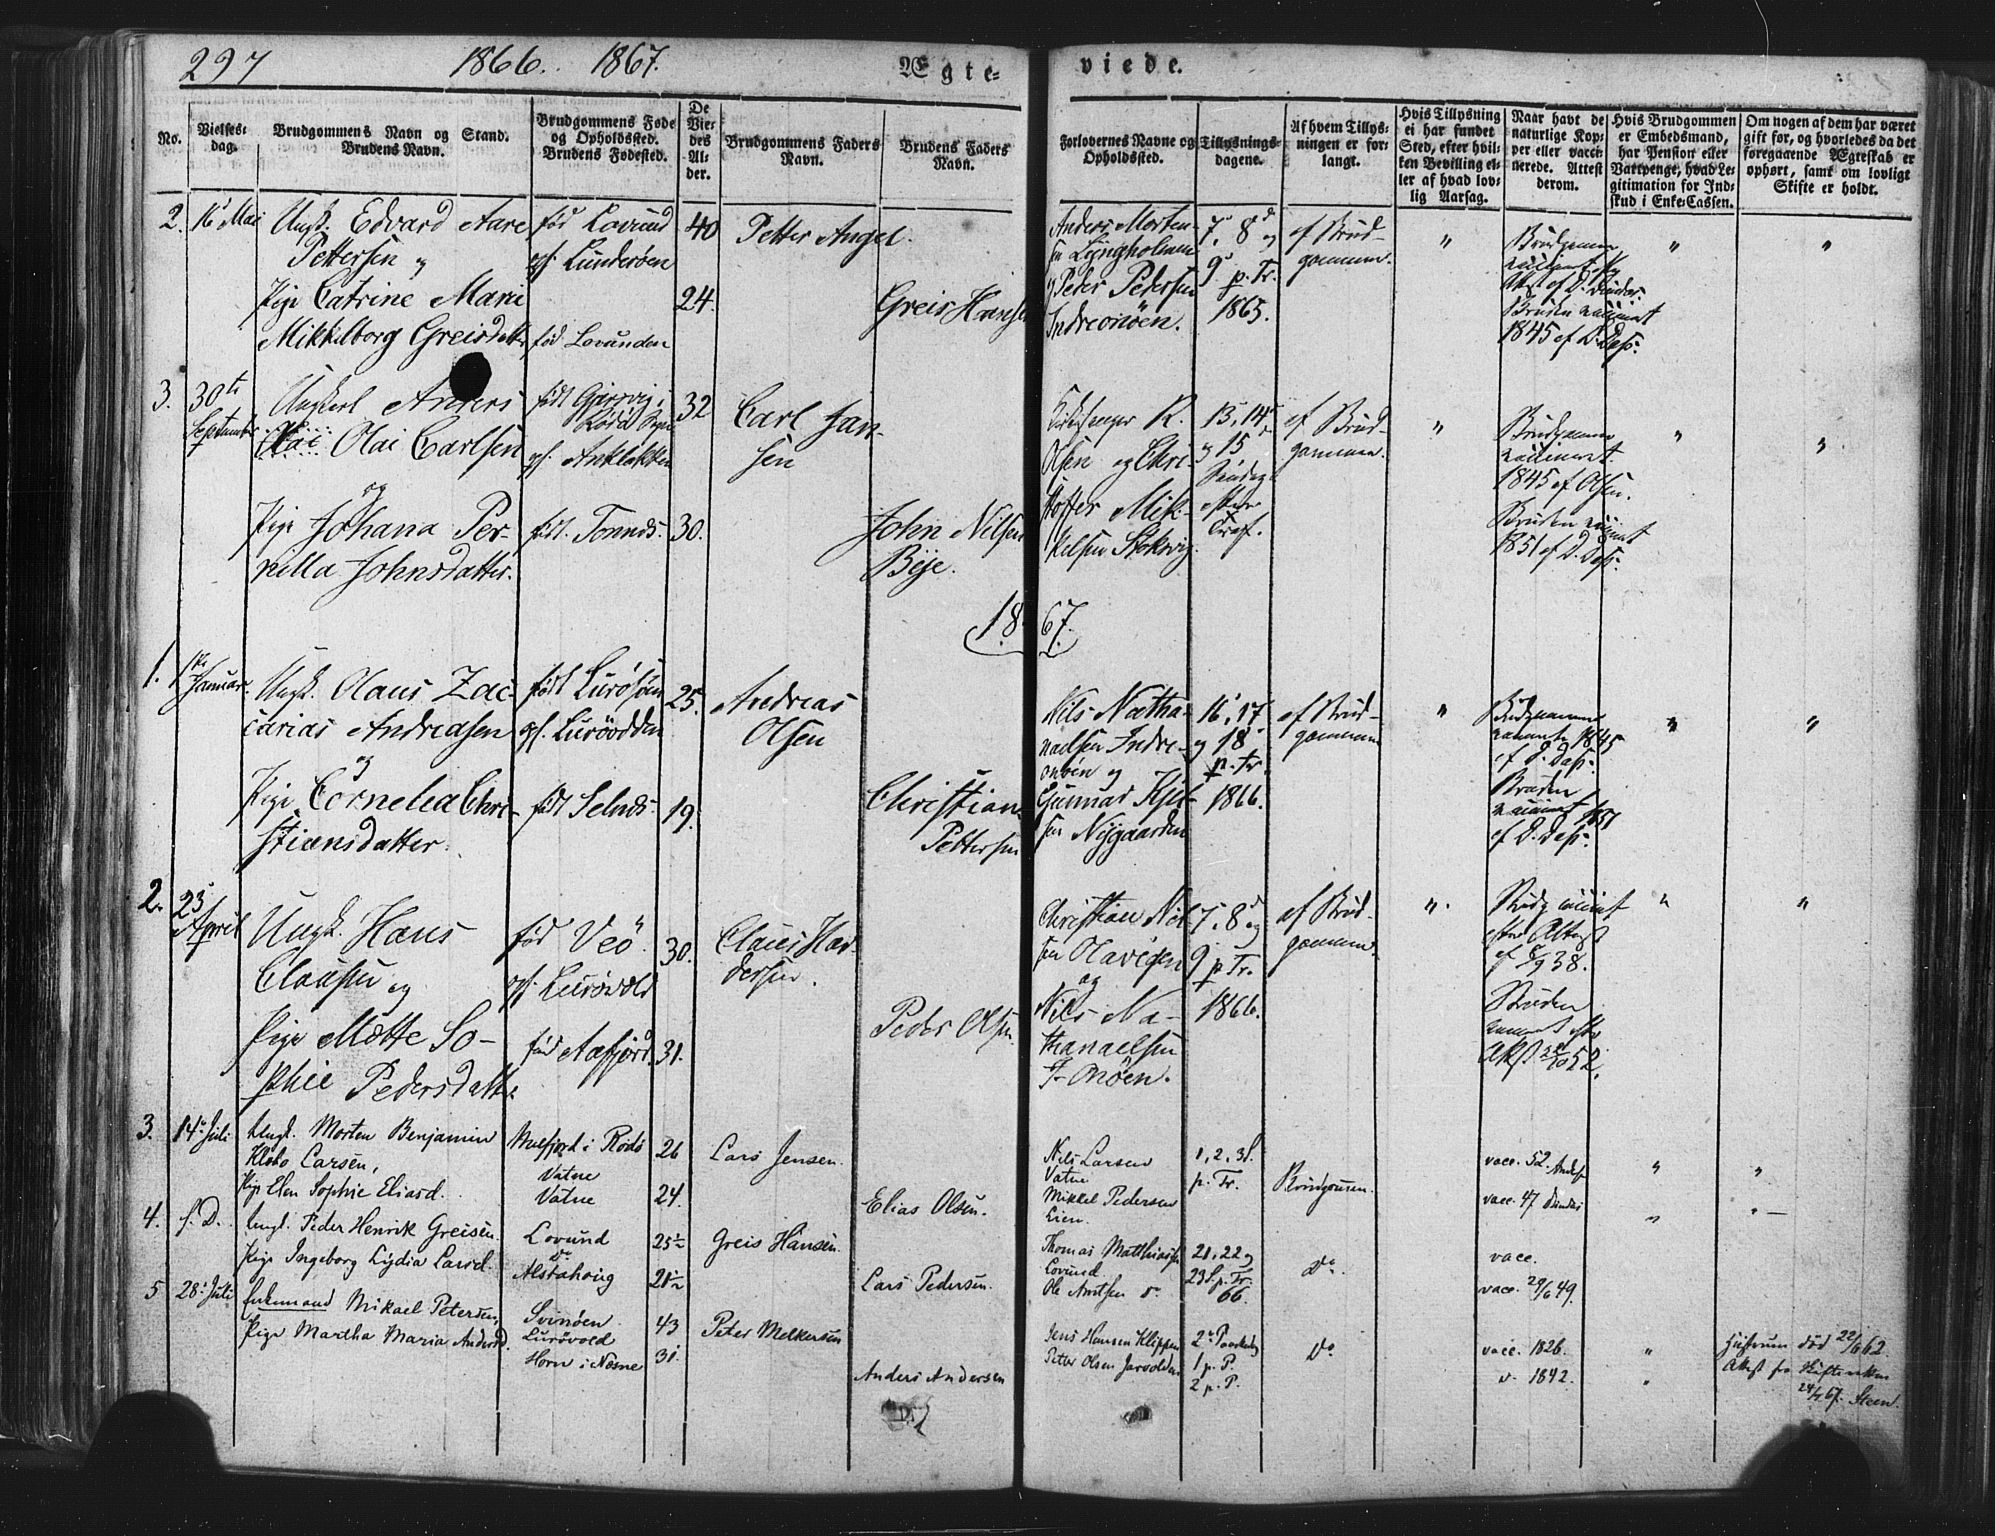 297 1866. 1867. Ægte= viede.
No.
Vielses=
dag.
Brudgommens Navn og Stand.
Brudens Navn.
Brudgommens Føde
og Opholdssted.
Brudens Fødested.
De
Vie=
des
Al=
der.
Brudgommens Faders
Navn.
Brudens Faders
Navn.
Forlovernes Navne og
Opholdssted.
Tillysnings=
dagene.
Af hvem Tillys=
ningen er for=
langt.
Hvis Tillysning
ei har fundet
Sted, efter hvil=
ken Bevilling el=
ler af hvad lov=
lig Aarsag.
Naar havt de
naturlige Kop=
per eller vacci=
nerede. Attest
derom.
Hvis Brudgommen
er Embedsmand,
har Pension eller
Vartpenge, hvad Le=
gitimation for Ind=
skud i Enke=Cassen.
Om nogen af dem har været
gift før, og hvorledes da det
foregaaende Ægteskab er
ophørt, samt om lovligt
Skifte er holdt.
2. 16' Mai Ungk. Edvard Aare
Pettersen og
Pige Catrine Marie
Mikkelborg Greisdatter
fød Lovund
Lunderøen
fød Lovunden
40
24.
Petter Angel.
Greis Hansen
Anders Morten-
sen Lyngholmen
Peder Pedersen
Indreonöen.
7, 8 og
9 p. Tr.
1865.
af Brud-
gommen.
"
Brudgommen
Bruden vaccineret
1845 af D. Dass.
"
"
3. 30te
September
Ungkarl Anders
Olai Olai Carlsen
og
Pige Johana Per-
nella Johnsdatter.
født
født. Tonnes.
32
30.
Carl Jan-
sen
John Nilsen
Beje.
Kirkesanger R.
Olsen og Chri-
stoffer Mik-
kelsen Stokvig.
13, 14
og 15
Søndag
efter
Tref.
af Brud-
gommen.
"
Brudgommen
vaccineret
1845 af Olsen.
Bruden
1851 af D. Dass.
"
"
1867.
1. 1te
Januar.
Ungk. Olaus Zac-
carias Andreasen
og
Pige Cornelia Chri-
stiansdatter.
født Lurösöen
Luröodden
født Selnes
25.
19.
Andreas
Olsen
Christian
Pettersen
Nils Natha-
naelsen Indre-
onöen og
Gunnar Kjel-
sen Nygaarden
16, 17
og 18
p. Tr.
1866.
af Brud-
gommen
"
Brudgommen
1845
af D. Dass.
Bruden
vaccineret 1851
af D. Dass.
"
"
2. 23
April
Ungk. Hans
Clausen og
Pige Mætte So-
phie Pedersdatter
fød Veö
Lurövold
fød Aafjord.
30.
31.
Claus Han-
dersen.
Peder Olsen
Christian Nil-
sen Olavigen
og
Nils Na-
thanaelsen
I-Onöen.
7, 8 og
9 p Tr.
1866.
af Brud-
gommen.
".
af 8/9 38.
Bruden
52.
"
"
3. 14' Juli Ungk. Morten Benjamin
Klobo Larsen,
Pige Elen Sophie Eliasd.
Melfjord i Rødø
Vatne
Vatne
26
24.
Lars Jensen.
Elias Olsen.
Nils Larsen
Vatne
Mikkel Pedersen
Lien.
1, 2, 3 S.
p. Tr.
Brudgommen.
vacc. 52.
vacc. 47
"
"
4. s. D. Ungk. Peder Henrik Greisen.
Pige Ingeborg Lydia Larsd.
Lovund
do
Alstahoug
25½
21½
Greis Hansen.
Lars Pedersen.
Thomas Matthiassen
Lovund.
Ole Arntsen do
21, 22 og
23 S. p. Tr.
66.
do
vacc.
vacc. 29/6 49.
"
" -
5 28' Juli Enkemand Mikael Petersen,
Pige Martha Maria Andersd.
Svinöen
Lurövold
Horn i Nesne
43
31.
Peter Melkersen
Anders Andersen
Jens Hansen Klippen
Petter Olsen
2' Paaskedag
1 p. P.
2 p. P.
do
vacc. 1826.
do 1842.
"
"
Hustruen død 22/6 62.
Attest fra Skifteretten
24/7 67. Steen.